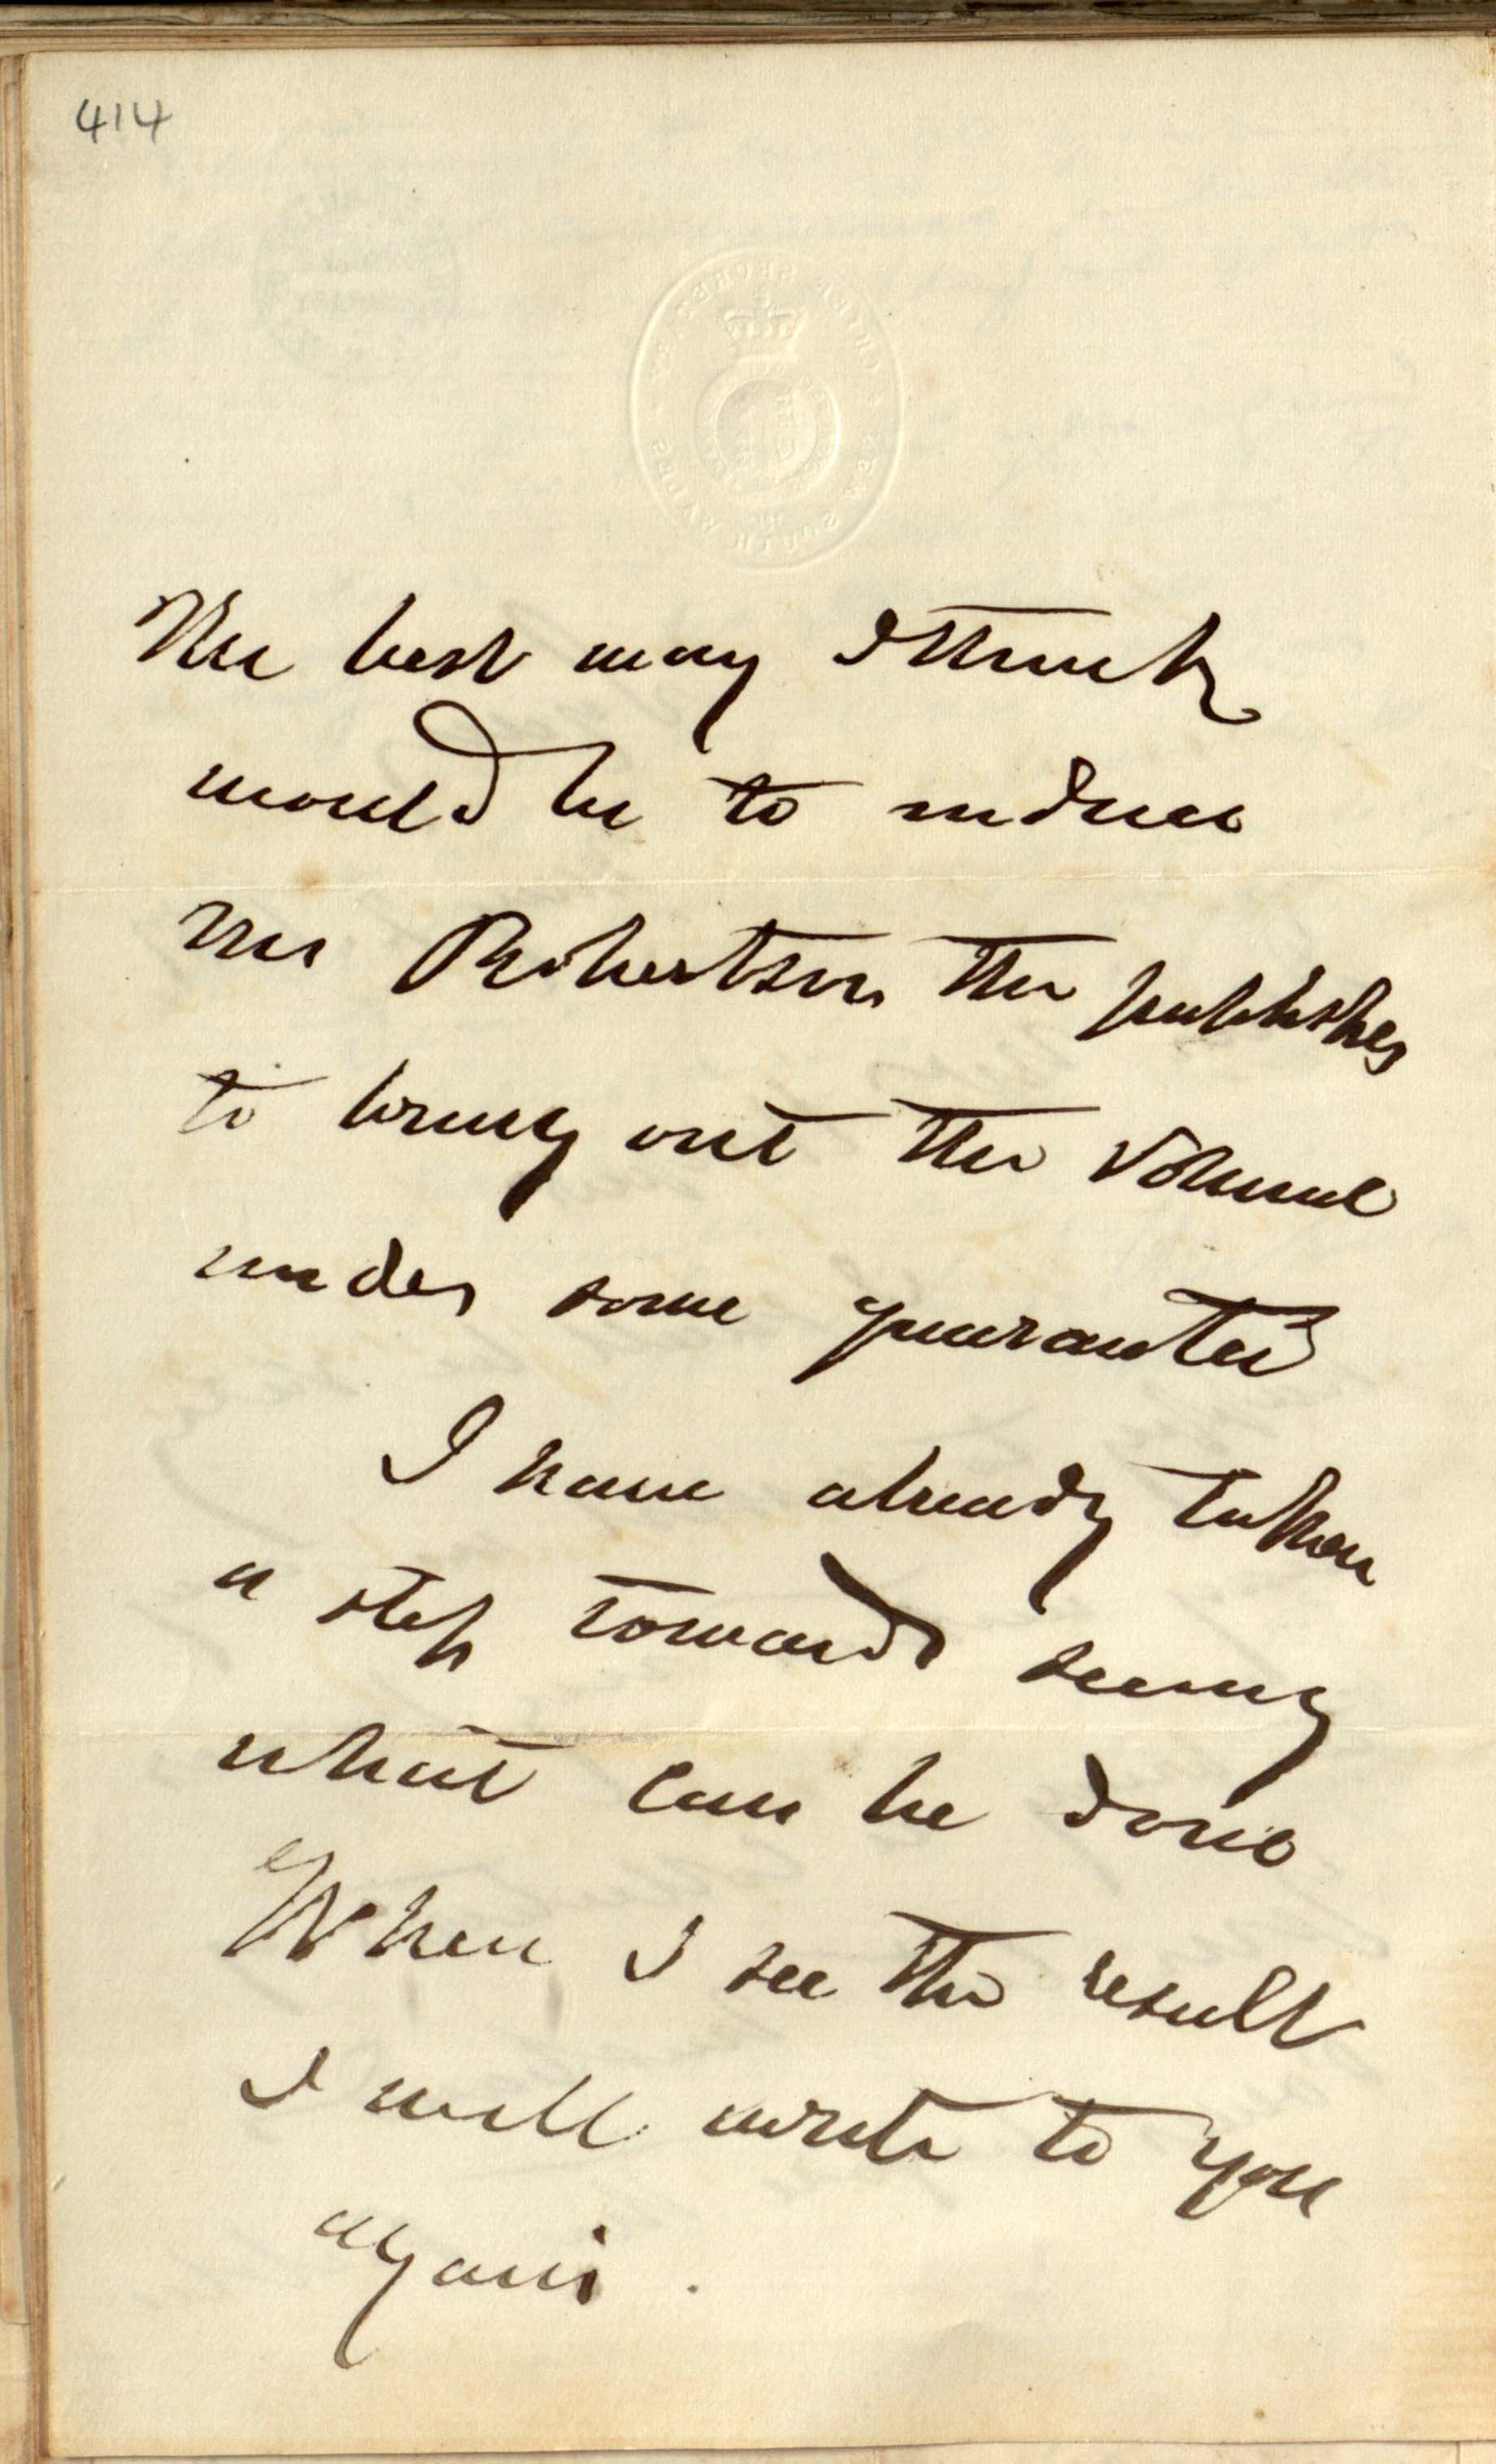 414
The best way I think
would be to induce
Mr Robertson the publisher
to bring out the volume
under some guarantee
I have already taken
a step towards seeing
what can be done
When I see the result
I will write to you
again.